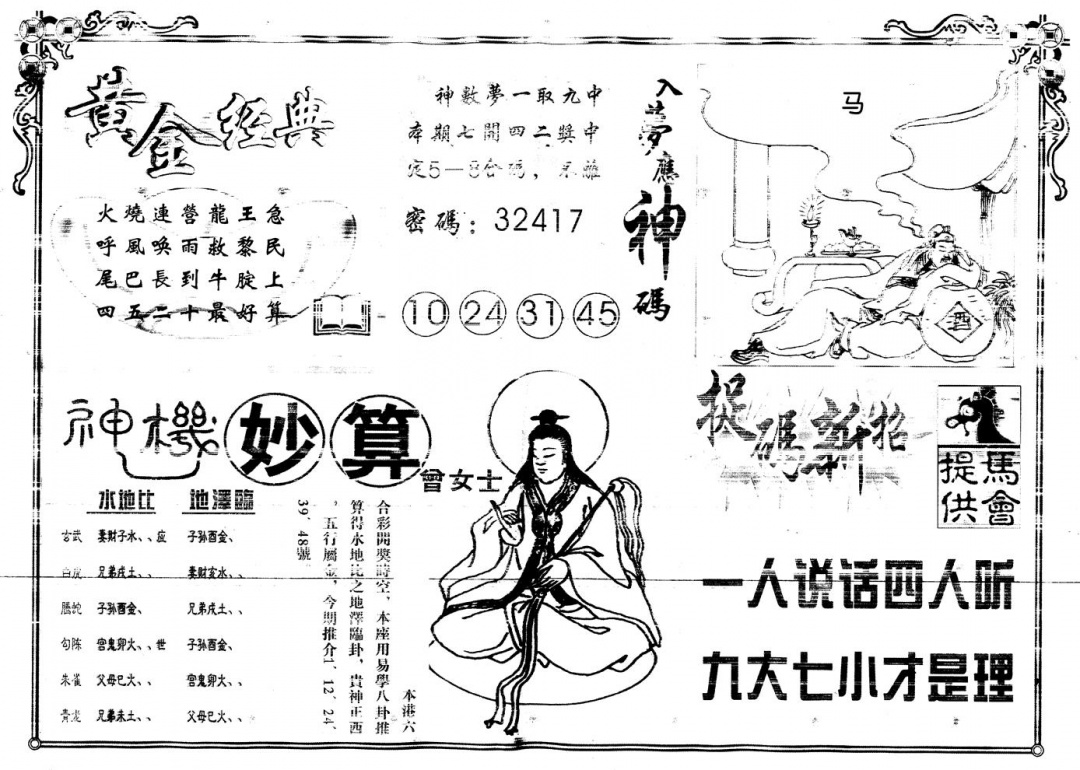 黄金經典
火燒連營龍王急
呼風喚雨救黎民
尾巴長到牛腚上
四五二十最好算
神數夢一取九中
本期七開四二獎中
定5—8合碼，不離
密碼：32417
10 24 31 45
入夢應神碼
马
酒
神機妙算
曾女士
水地比 地澤臨
玄武 妻財子水、、应 子孙酉金、、
白虎 兄弟戌土、、 妻财亥水、、
螣蛇 子孙酉金、 兄弟戌土、、
句陈 官鬼卯火、、世 子孙酉金、
朱雀 父母巳火、、 官鬼卯火、、
青龙 兄弟未土、、 父母巳火、
本港六
合彩開獎時空，本座用易學八卦推
算得水地比之地澤臨卦，貴神正西
，五行屬金，今期推介1、12、24、
39、48號
捉碼新招
馬會
提供
一人说话四人听
九大七小才是理